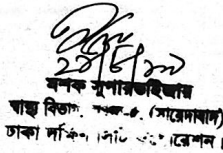 ২৯/৮/১৭
মশক সুপারভাইজার
স্বাস্থ্য বিভাগ, (সায়েদাবাদ)
ঢাকা দক্ষিণ সিটি কর্পোরেশন।